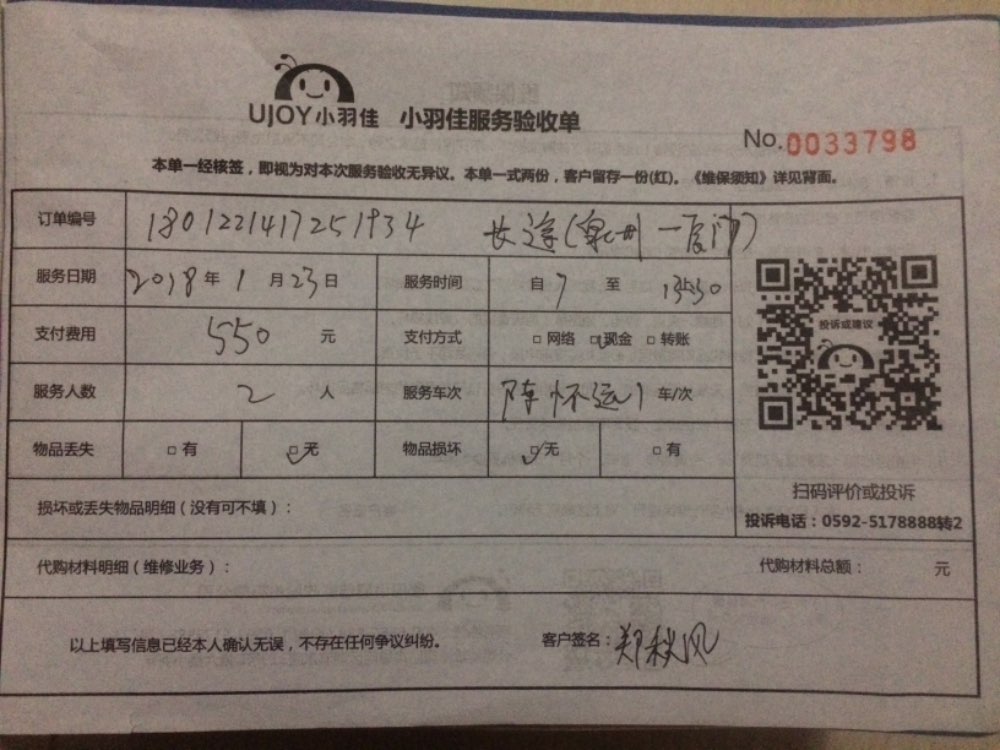 UJOY小羽佳 小羽佳服务验收单
No.0033798
本单一经核签，即视为对本次服务验收无异议。本单一式两份，客户留存一份(红)。《维保须知》详见背面。
订单编号 1801221417251934 长途(泉州一厦门)
服务日期 2018年1月23日 服务时间 自7至1350
支付费用 550元 支付方式 □网络 □现金 □转账
服务人数 2人 服务车次 陈怀运1车/次
物品丢失 □有 □无 物品损坏 □无 □有
投诉或建议
扫码评价或投诉
投诉电话：0592-5178888转2
损坏或丢失物品明细（没有可不填）：
代购材料明细（维修业务）： 代购材料总额： 元
以上填写信息已经本人确认无误，不存在任何争议纠纷。 客户签名：郑秋风